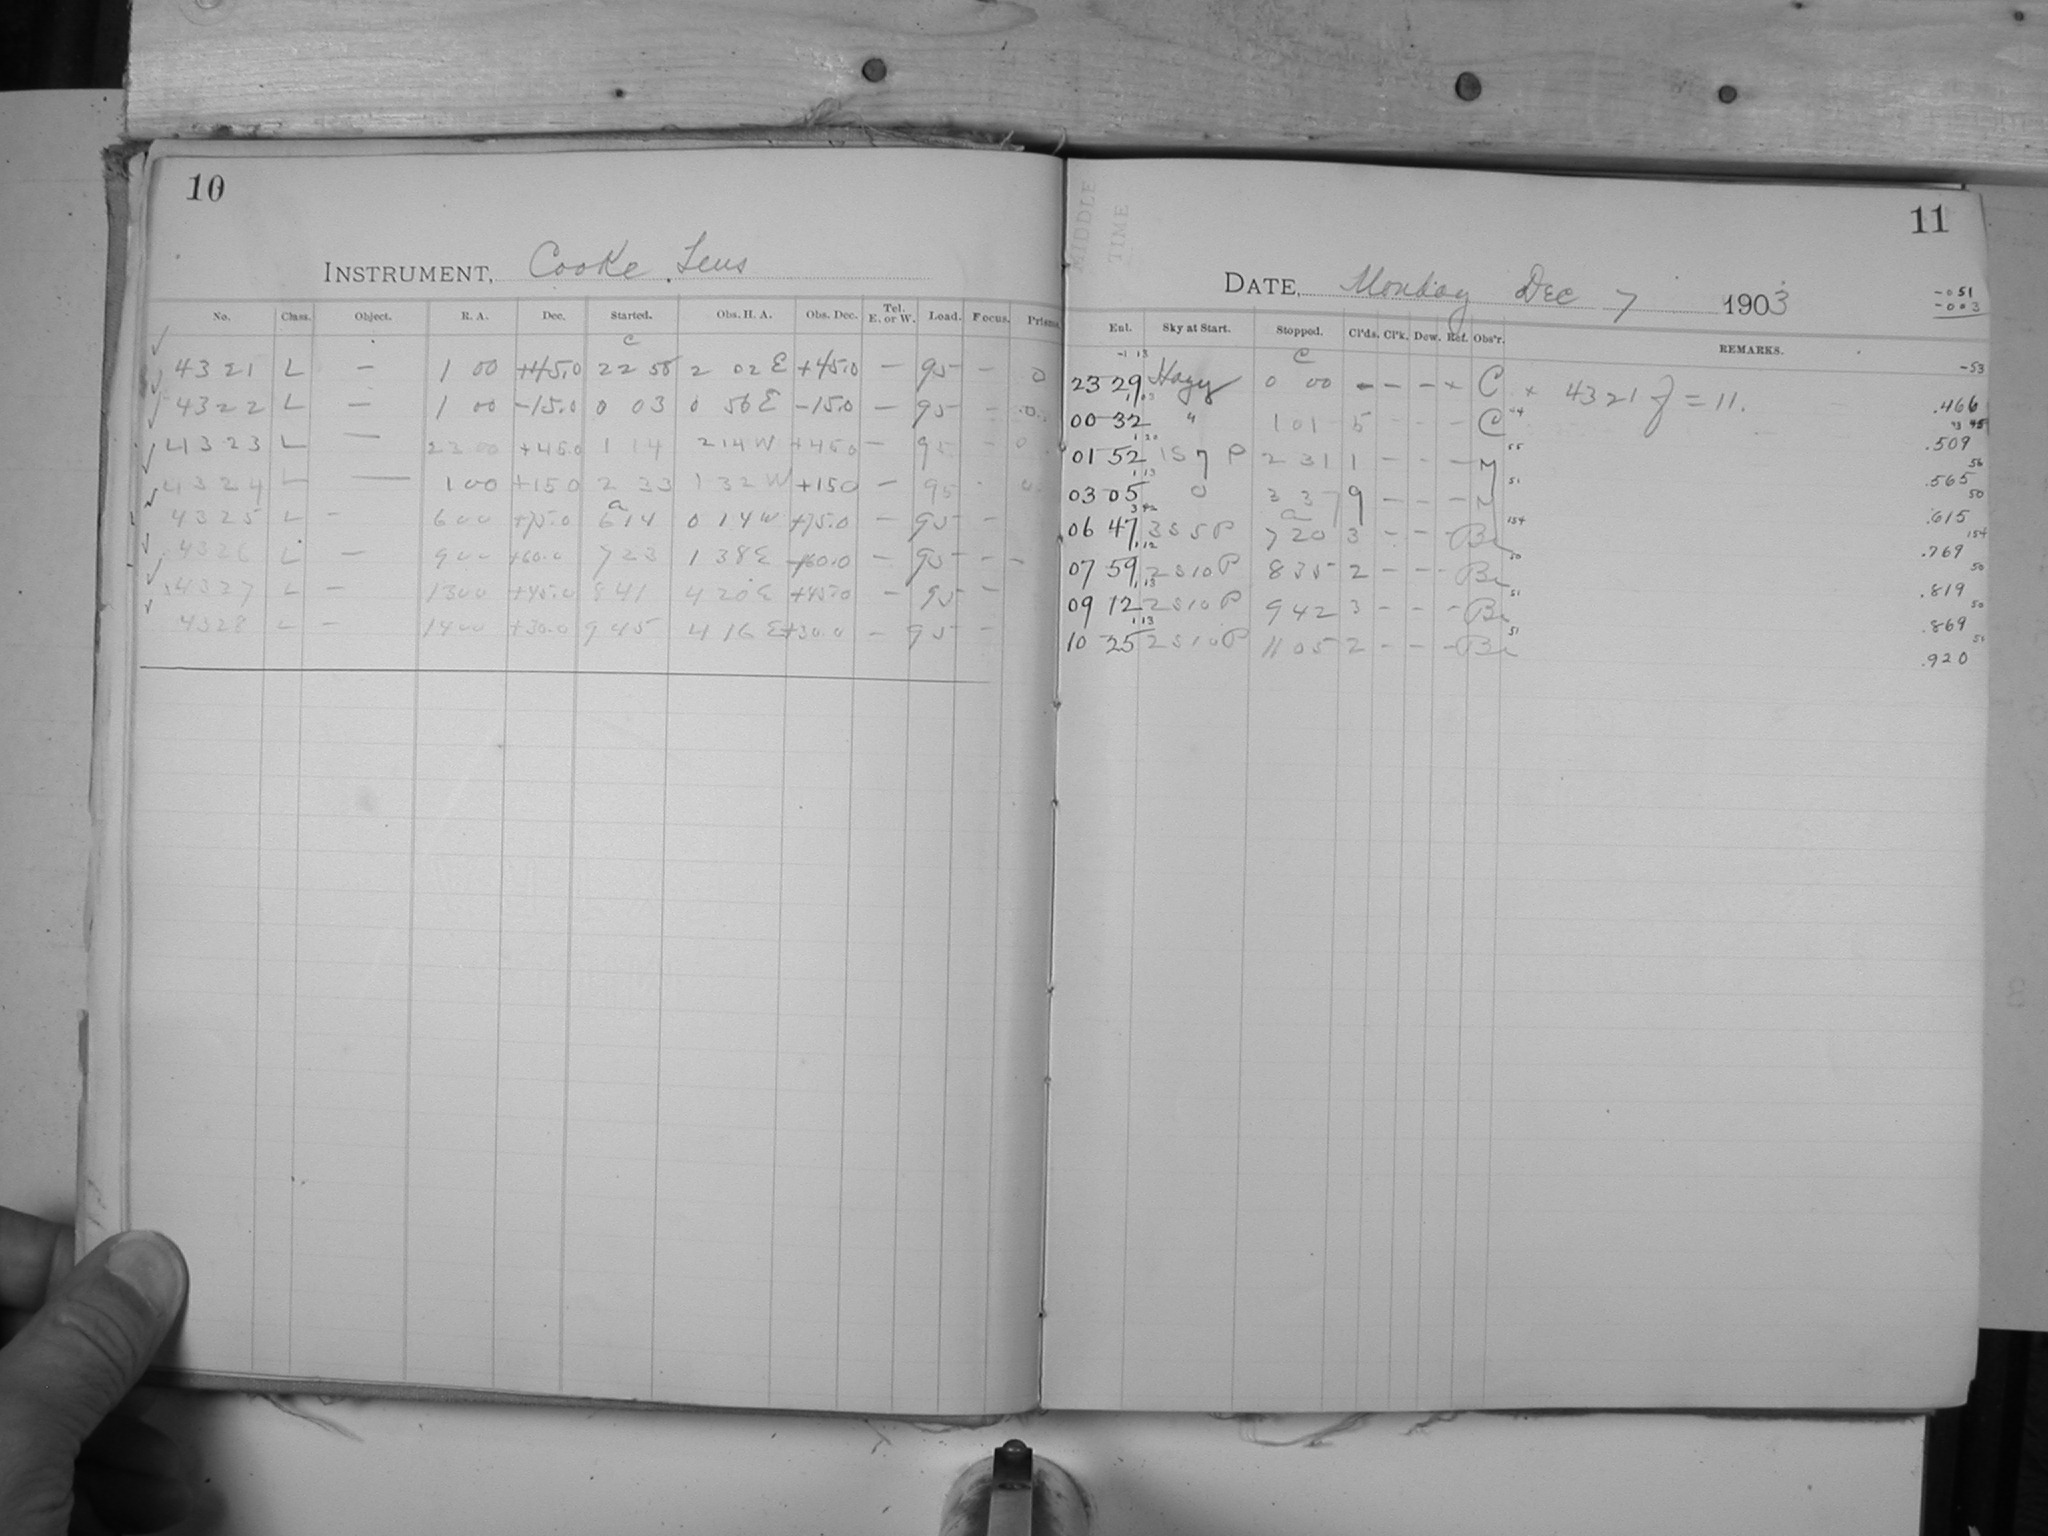 10
INSTRUMENT, Cooke Lens
No. Class. Object. R. A. Dec. Started. Obs. H. A. Obs. Dec. Tel. E. or W. Load. Focus. Prisms.
c
4321 L — 1 00 +45.0 22 58 2 02 E +45.0 — 95 — 0
4322 L — 1 00 -15.0 0 03 0 56 E -15.0 — 95 — 0
4323 L — 23 00 +45.0 1 14 2 14 W +45.0 — 95 - 0
4324 L — 1 00 +15.0 2 33 1 32 W +15.0 — 95 - 0
a
4325 L — 6 00 +75.0 6 14 0 14 W +75.0 — 95 —
4326 L — 9 00 +60.0 7 23 1 38 E +60.0 — 95 — —
4327 L — 13 00 +45.0 8 41 4 20 E +45.0 — 95 —
4328 L — 14 00 +30.0 9 45 4 16 E +30.0 — 95 —
11
MIDDLE
TIME
DATE, Monday Dec 7 1903
-.051
-.003
-53
Ent. Sky at Start. Stopped. Cl'ds. Cl'k. Dew. Ref. Obs'r. REMARKS.
-1 13 c
23 29 Hazy 0 00 - - - x C x 4321 J = 11. .466
1 03 44 43 45
00 32 " 1 01 5 - - - C .509
1 20 55 56
01 52 1 S 7 P 2 31 1 - - - M .565
1 13 51 50
03 05 0 3 37 9 - - - M .615
3 42 a 154 154
06 47 3 S 5 P 7 20 3 - - - Br .769
1 12 50 50
07 59 2 S 10 P 8 35 2 - - - Br .819
1 13 51 50
09 12 2 S 10 P 9 42 3 - - - Br .869
1 13 51 51
10 25 2 S 10 P 11 05 2 - - - Br .920